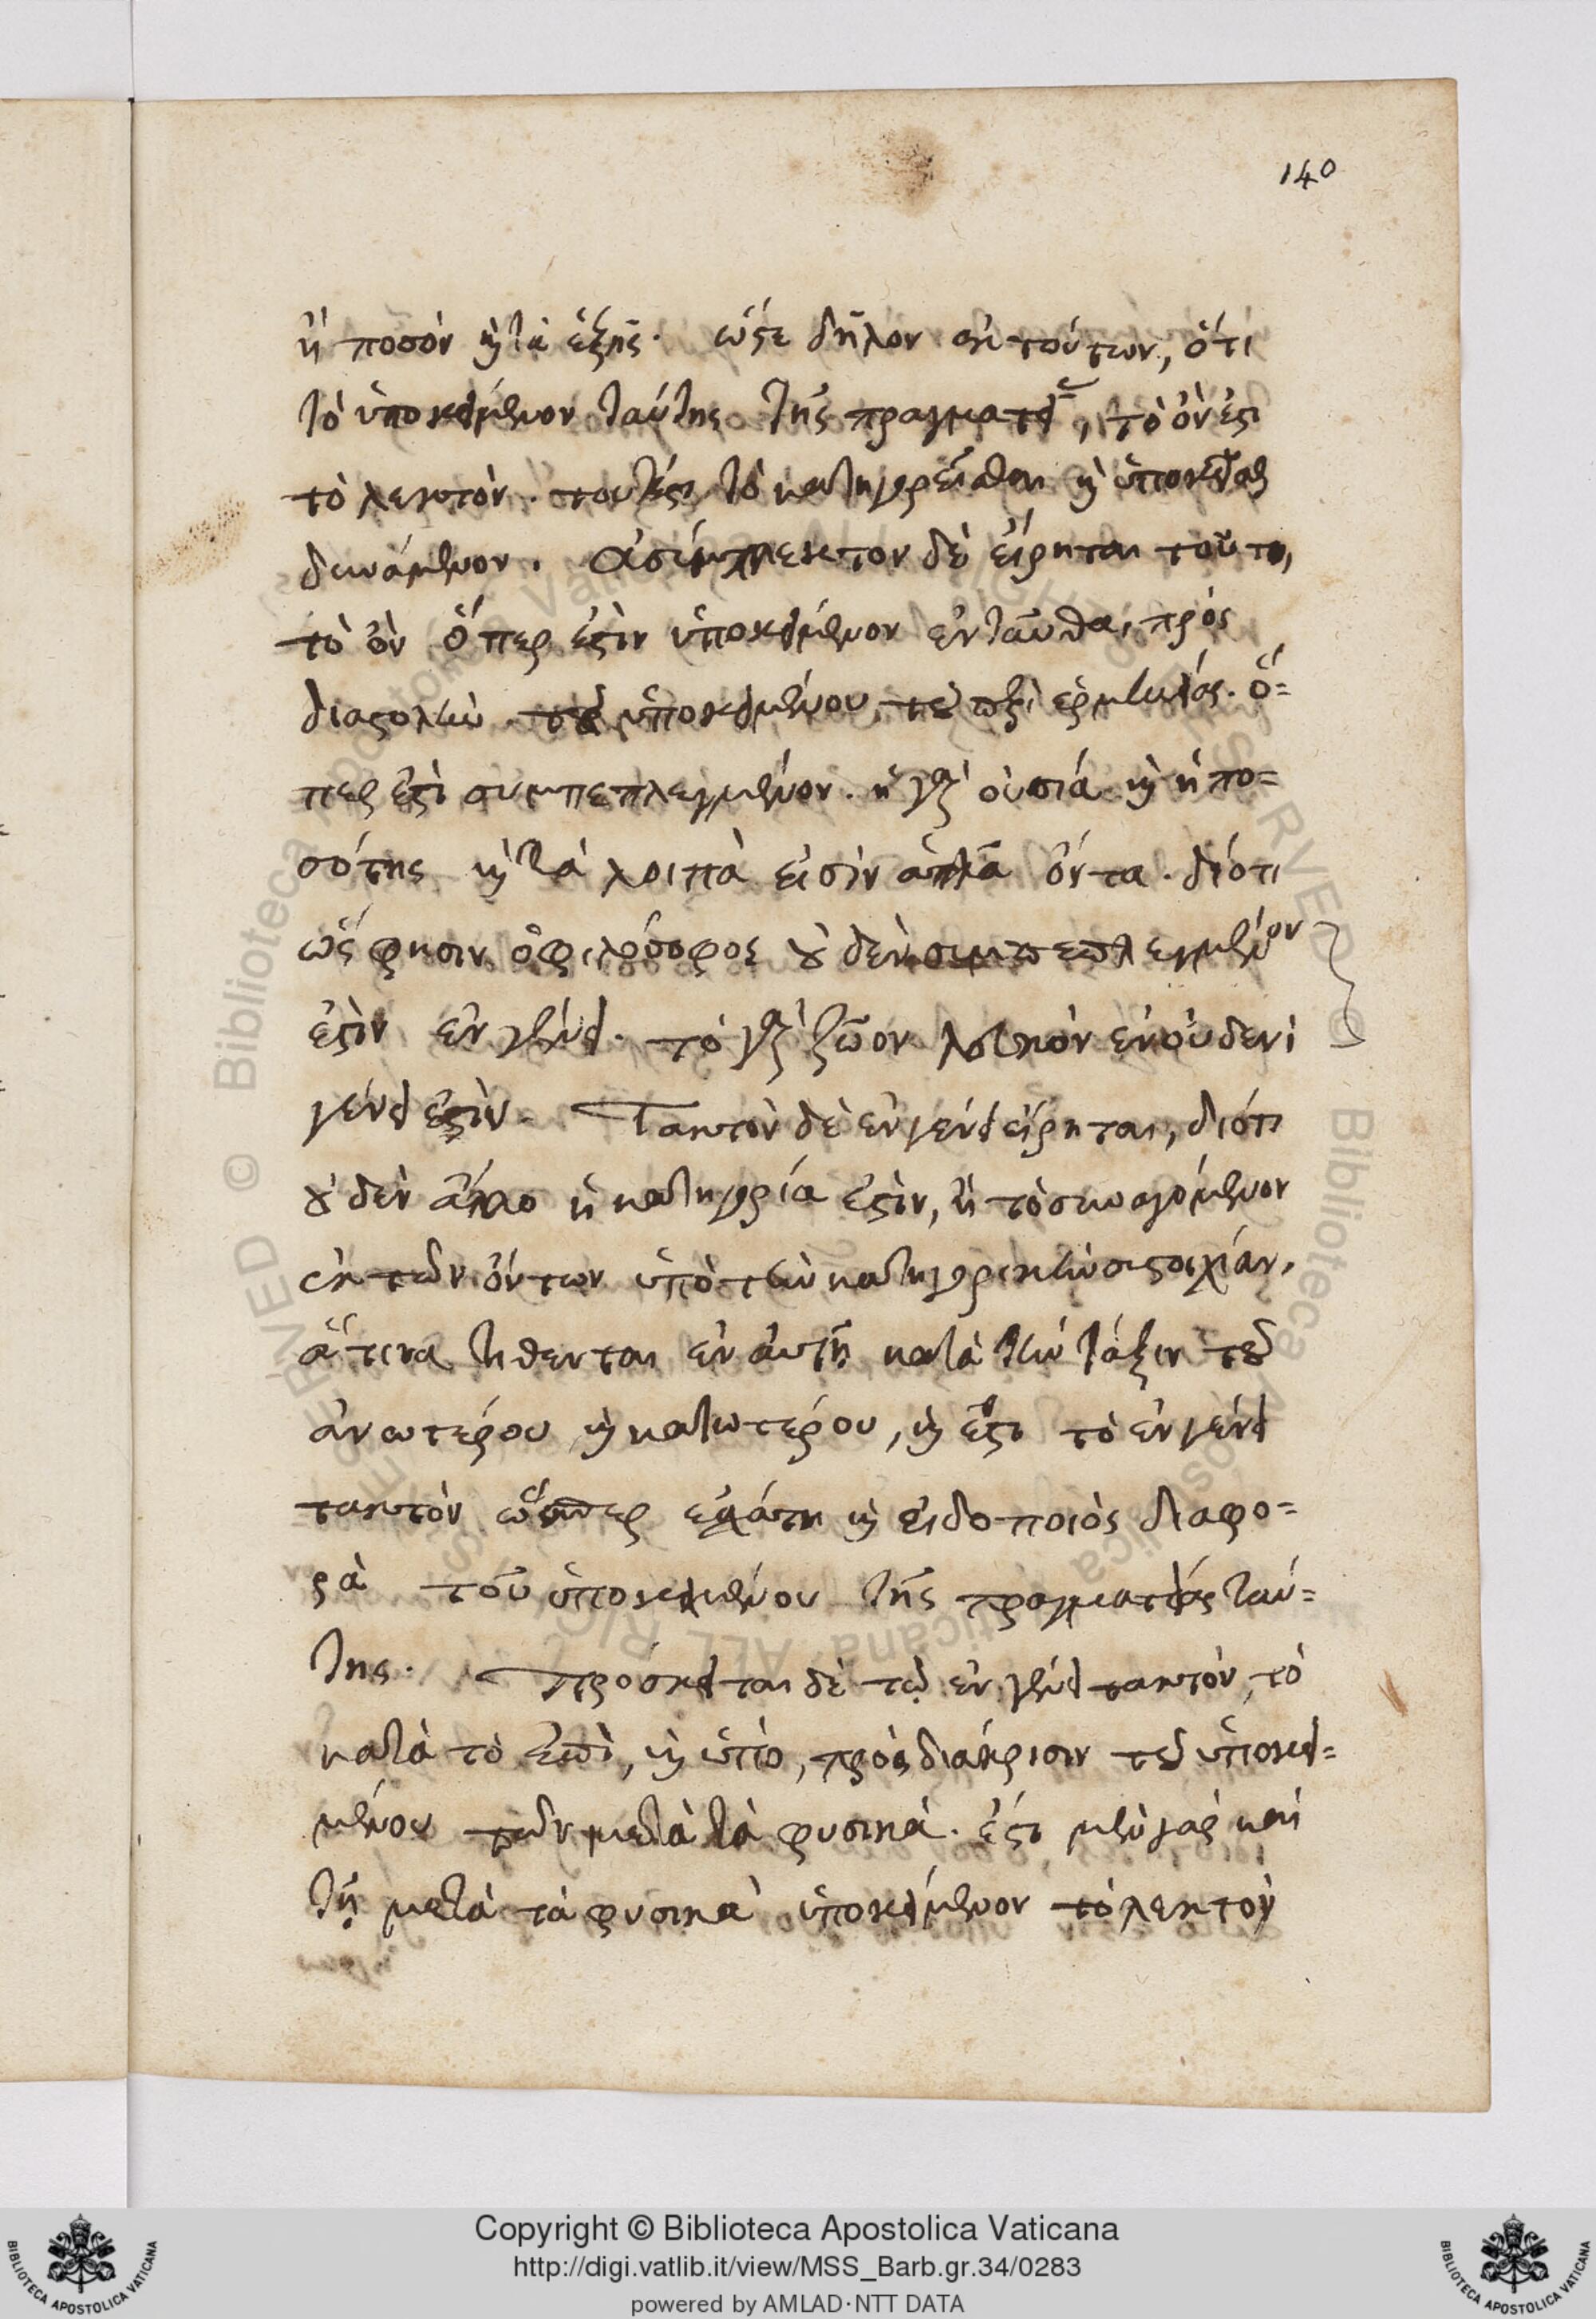 140
ἢ ποσὸν καὶ τὰ ἑξῆς. ὥστε δῆλον ἐκ τούτων, ὅτι
τὸ ὑποκείμενον ταύτης τῆς πραγματείας, τὸ ὄν ἐστι
τὸ λεκτὸν. τουτέστι τὸ κατηγορεῖσθαι καὶ ὑποκεῖσθαι
δυνάμενον. ἀσύμπλεκτον δὲ εἴρηται τοῦτο,
τὸ ὂν ὅπερ ἐστὶν ὑποκείμενον ἐνταῦθα, πρὸς
διαστολὴν τοῦ ὑποκειμένου τοῦ περὶ ἑρμηνείας. ὅ=
περ ἐστὶ συμπεπλεγμένον. ἡ γὰρ οὐσία καὶ ἡ πο=
σότης καὶ τὰ λοιπὰ εἰσὶν ἁπλᾶ ὄντα. διότι
ὥς φησιν ὁ φιλόσοφος οὐδὲν συμπεπλεγμένον
ἐστὶν ἐν γένει. τὸ γὰρ ζῶον λογικὸν ἐν οὐδενὶ
γένει ἐστὶν. Τακτὸν δὲ ἐν γένει εἴρηται, διότι
οὐδὲν ἄλλο ἡ κατηγορία ἐστὶν, ἢ τὸ συναγόμενον
ἐκ τῶν ὄντων ὑπὸ τὴν κατηγορικὴν συστοιχίαν,
ἅτινα τίθενται ἐν αὐτῇ κατὰ τὴν τάξιν τοῦ
ἀνωτέρου καὶ κατωτέρου, καὶ ἔστι τὸ ἐν γένει
τακτὸν ὥσπερ ἐσχάτη καὶ εἰδοποιὸς διαφο=
ρὰ τοῦ ὑποκειμένου τῆς πραγματείας ταύ=
της. Πρόσκειται δὲ τῷ ἐν γένει τακτὸν, τὸ
κατὰ τὸ ἐπὶ, καὶ ὑπὸ, πρὸς διάκρισιν τοῦ ὑποκει=
μένου τῶν μετὰ τὰ φυσικά. ἔστι μὲν γὰρ καὶ
τῇ μετὰ τὰ φυσικὰ ὑποκείμενον τὸ λεκτὸν
Copyright © Biblioteca Apostolica Vaticana
http://digi.vatlib.it/view/MSS_Barb.gr.34/0283
powered by AMLAD·NTT DATA